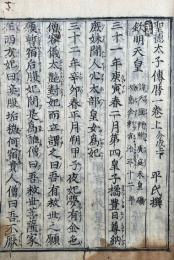 聖徳太子傳曆一卷上 平氏撰
欽明天皇
三十一年庚寅春二月第四皇子橘豊日尊納
庶妹間人穴太部皇女為妃
三十二年辛卯春正月朔甲子夜妃夢有金色
僧容儀太艶對妃而立謂之曰吾有救世之願
願暫宿后腹妃問是為誰僧曰吾救世菩薩家
在西方妃曰妾腹垢穢何宿貴人僧曰吾不厭